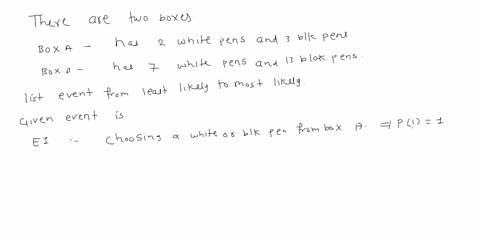 There are two boxes
BOX A - has 2 white pens and 3 blk pens
BOX B - has 7 white pens and 13 black pens.
list event from least likely to most likely.
Given event is
E1 :- Choosing a white or blk pen from box A. ⇒ P(1) = 1